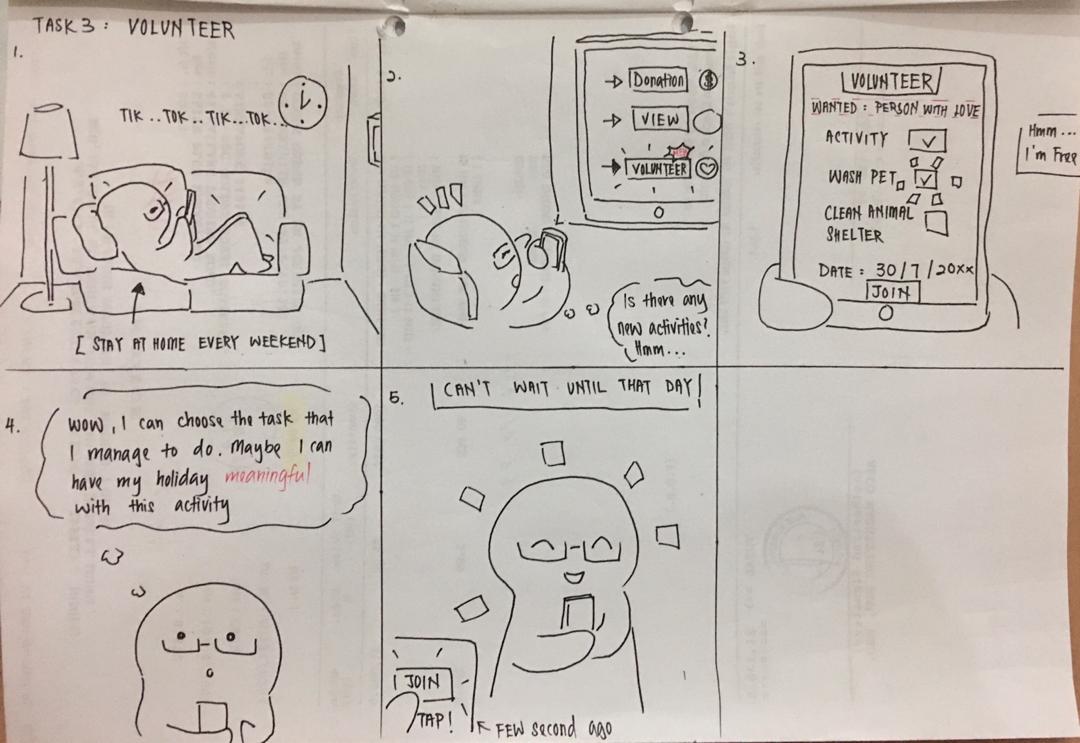 TASK 3 : VOLUNTEER
1.
TIK .. TOK .. TIK... TOK...
[ STAY AT HOME EVERY WEEKEND ]
2.
Donation $
VIEW
VOLUNTEER
Is there any
new activities?
Hmm...
3.
VOLUNTEER
WANTED : PERSON WITH LOVE
ACTIVITY
WASH PET
CLEAN ANIMAL
SHELTER
DATE : 30/7/20xx
JOIN
Hmm...
I'm Free
4.
WOW, I can choose the task that
I manage to do. Maybe I can
have my holiday meaningful
with this activity
5.
CAN'T WAIT UNTIL THAT DAY!
JOIN
TAP!
FEW second ago